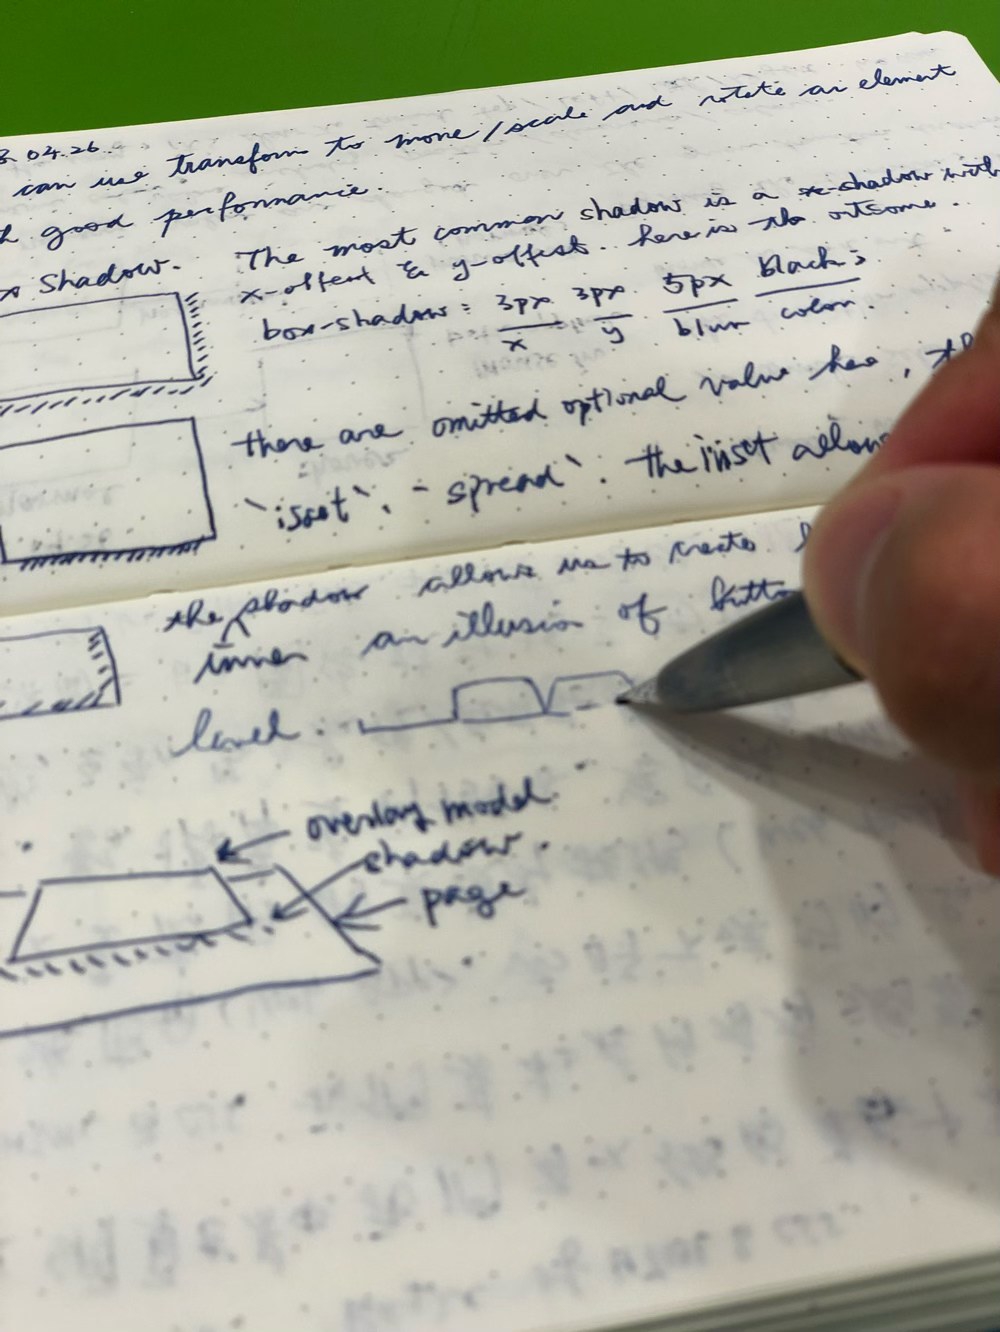 04.26
can use transform to move/scale and rotate an element
good performance.
Shadow. The most common shadow is a x-shadow with
x-offent & y-offest. here is the outsome.
box-shadow: 3px 3px 5px black;
x y blur color.
there are omitted optional value here,
`isset`, `spread`. the inset allow
the shadow allows us to create
inner an illusion of
level.
overlay model
shadow.
page